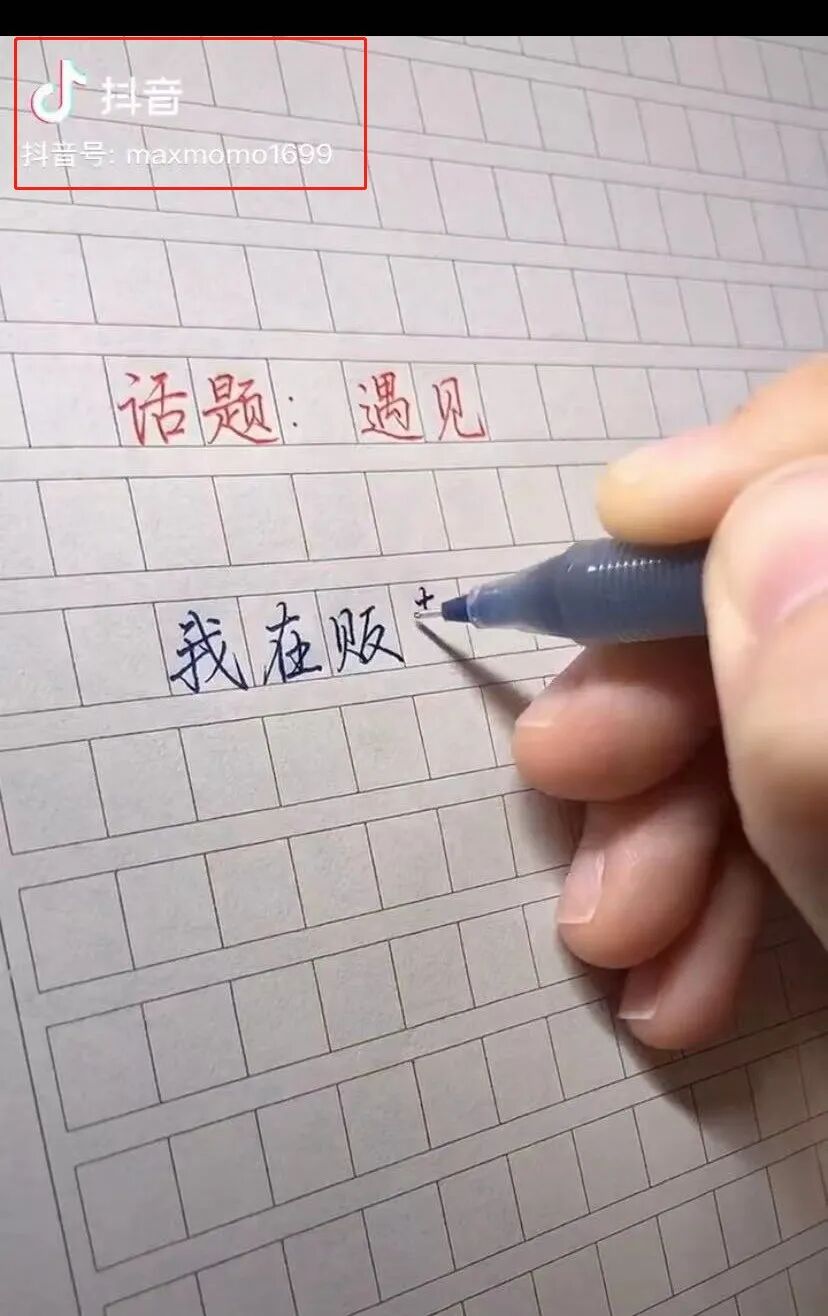 抖音
抖音号: maxmomo1699
话题：遇见
我在贩